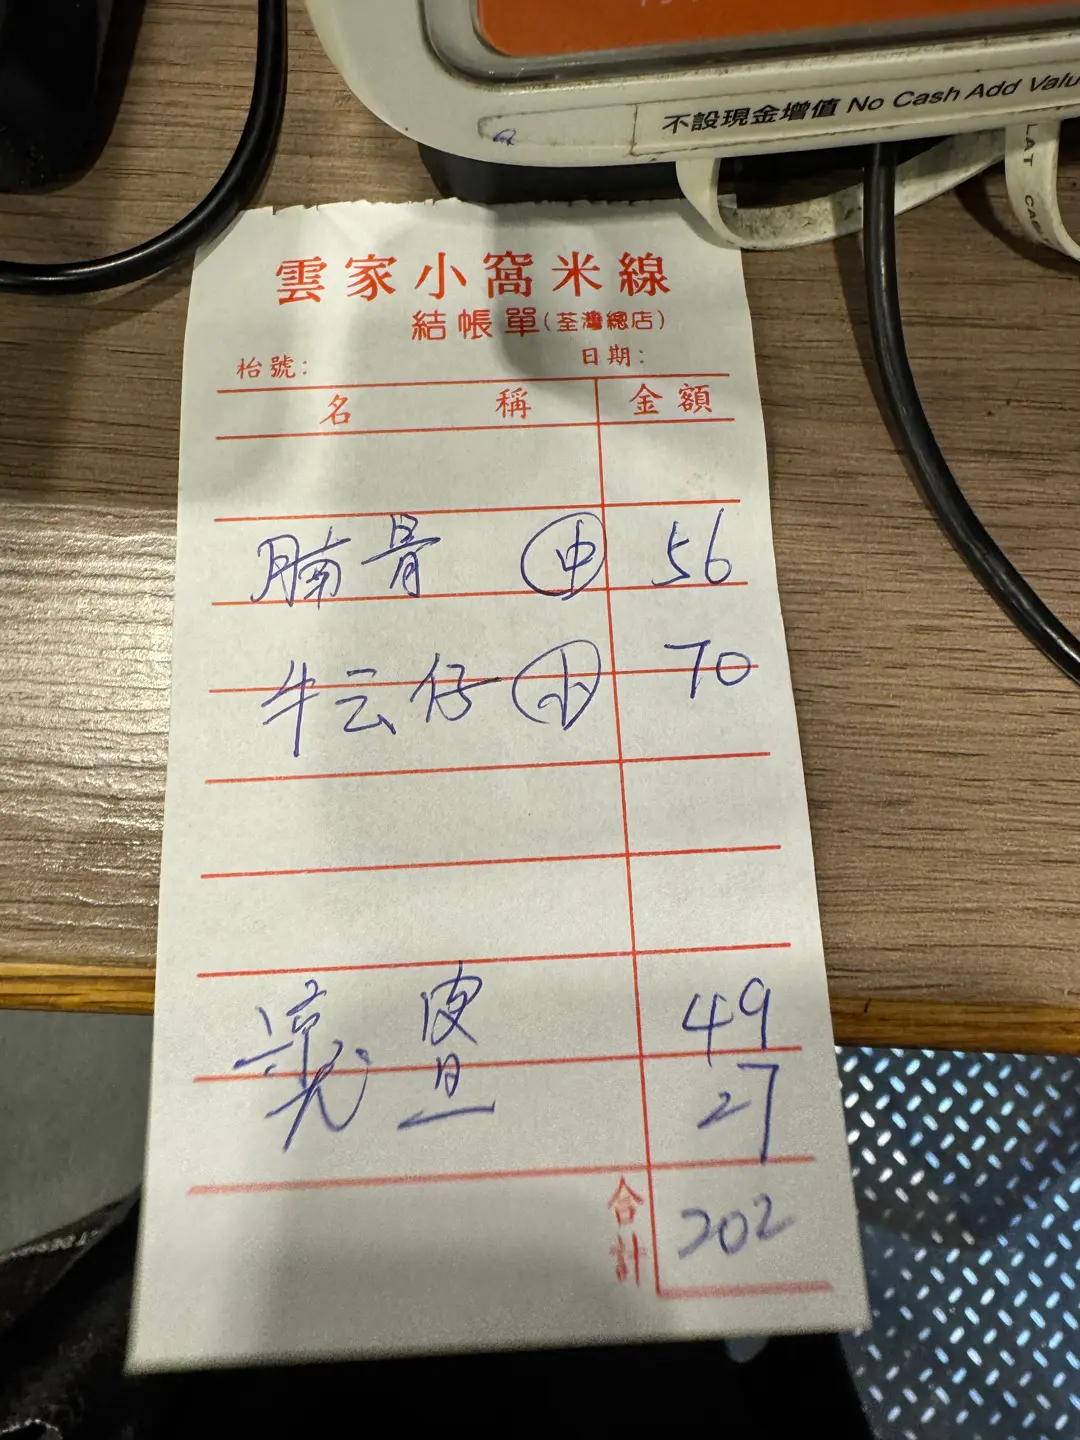 不設現金增值 No Cash Add Valu
LAT
雲家小窩米線
結帳單(荃灣總店)
枱號:
日期:
名稱 金額
腩骨 中 56
牛云仔 小 70
涼皮 49
旦 27
合計 202